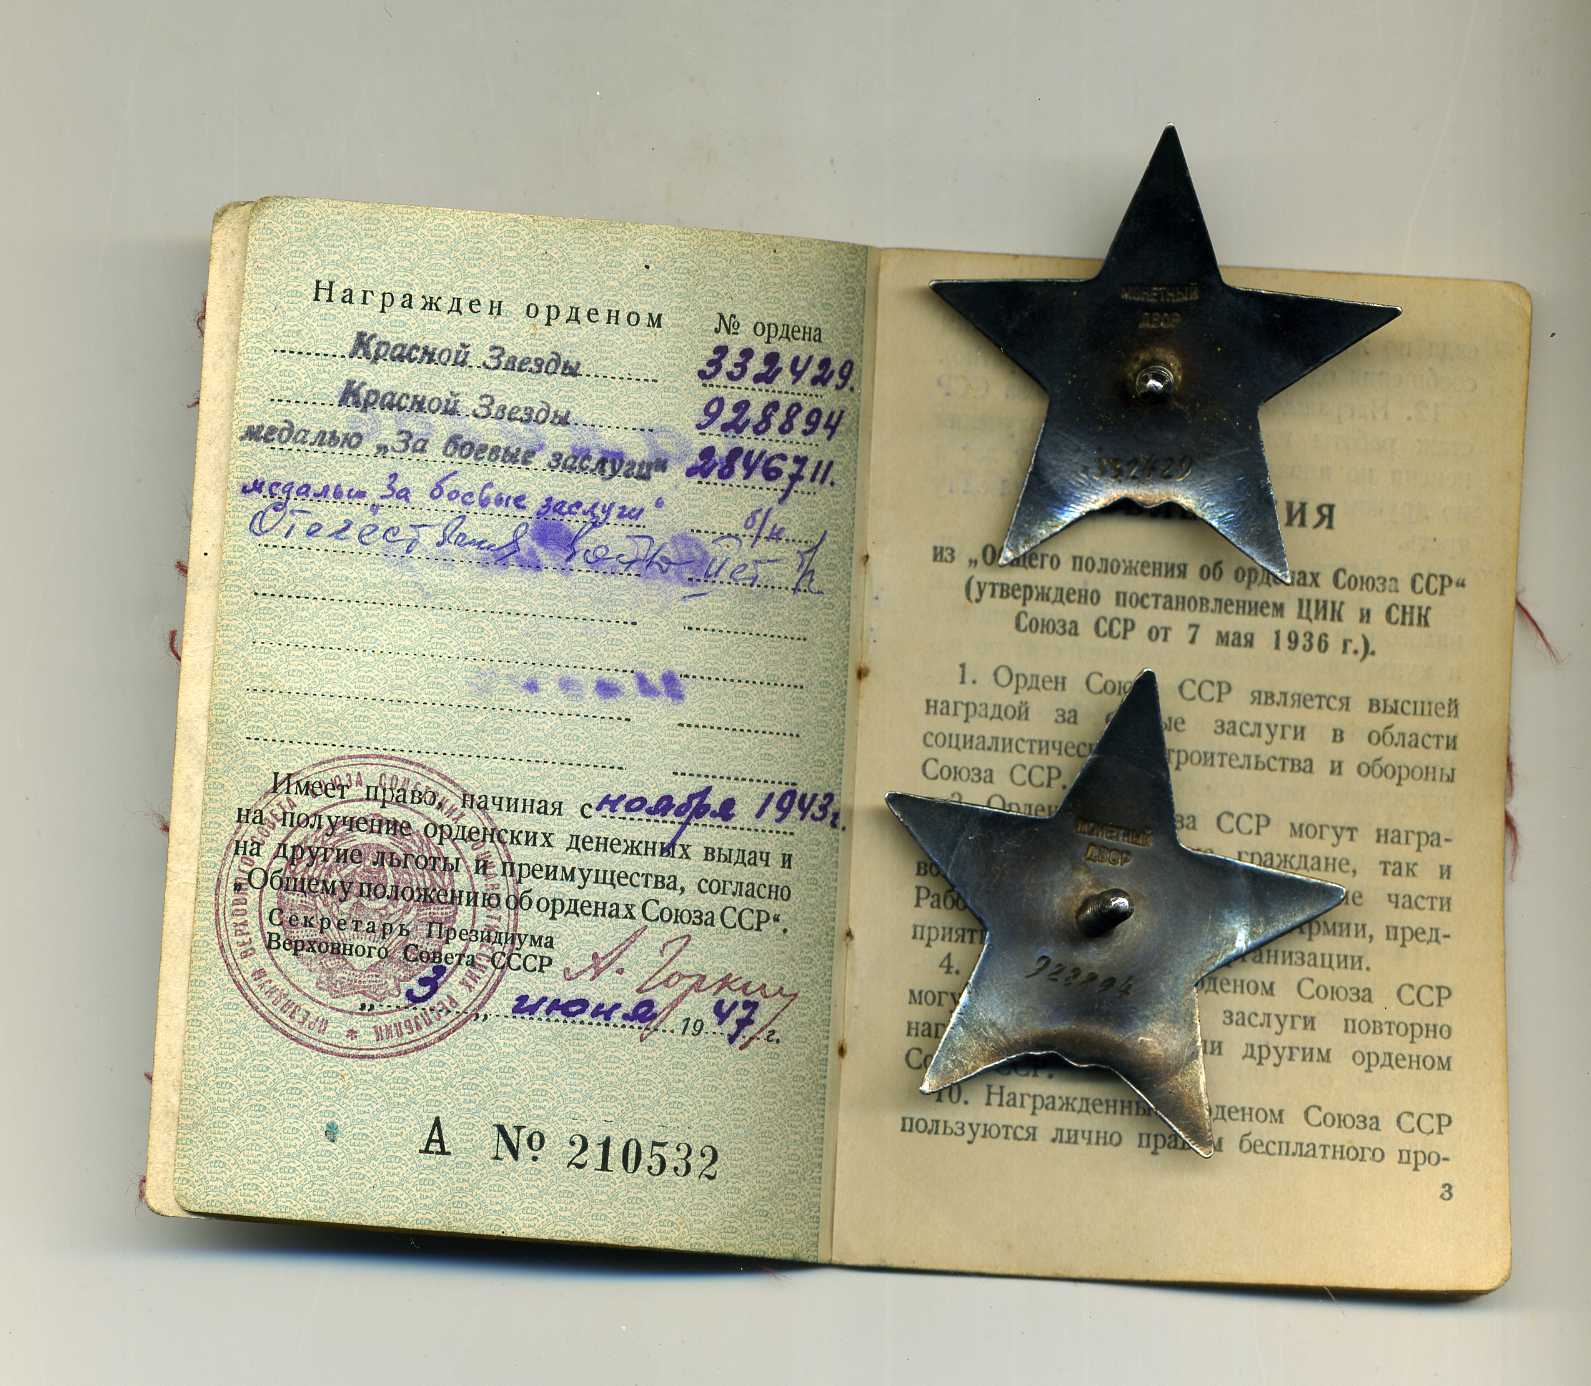 Награжден орденом № ордена
Красной Звезды 332429.
Красной Звезды 928894
медалью „За боевые заслуги“ 2846711.
медалью „За боевые заслуги“ б/н
Имеет право, начиная с ноября 1943 г.
на получение орденских денежных выдач и
на другие льготы и преимущества, согласно
„Общему положению об орденах Союза ССР“.
Секретарь Президиума
Верховного Совета СССР
А. Горкин
„ 3 „ июня 19 47 г.
А № 210532
МОНЕТНЫЙ
ДВОР
332429
ИЯ
из „Общего положения об орденах Союза ССР“
(утверждено постановлением ЦИК и СНК
Союза ССР от 7 мая 1936 г.).
1. Орден Союза ССР является высшей
наградой за заслуги в области
социалистического строительства и обороны
Союза ССР.
2. Орденом Союза ССР могут награ-
граждане, так и
части
Армии, пред-
приятия организации.
4. орденом Союза ССР
могут заслуги повторно
другим орденом
Союза ССР.
10. Награжденные орденом Союза ССР
пользуются лично правом бесплатного про-
3
МОНЕТНЫЙ
ДВОР
928894